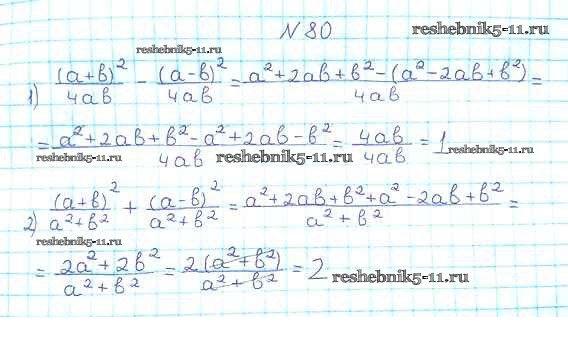 N 80 reshebnik5-11.ru
reshebnik5-11.ru
1) (a+b)²/4ab − (a-b)²/4ab = a²+2ab+b²-(a²-2ab+b²)/4ab =
= a²+2ab+b²-a²+2ab-b²/4ab = 4ab/4ab = 1 reshebnik5-11.ru
reshebnik5-11.ru reshebnik5-11.ru
2) (a+b)²/a²+b² + (a-b)²/a²+b² = a²+2ab+b²+a²-2ab+b²/a²+b² =
reshebnik5-11.ru
= 2a²+2b²/a²+b² = 2(a²+b²)/a²+b² = 2 reshebnik5-11.ru